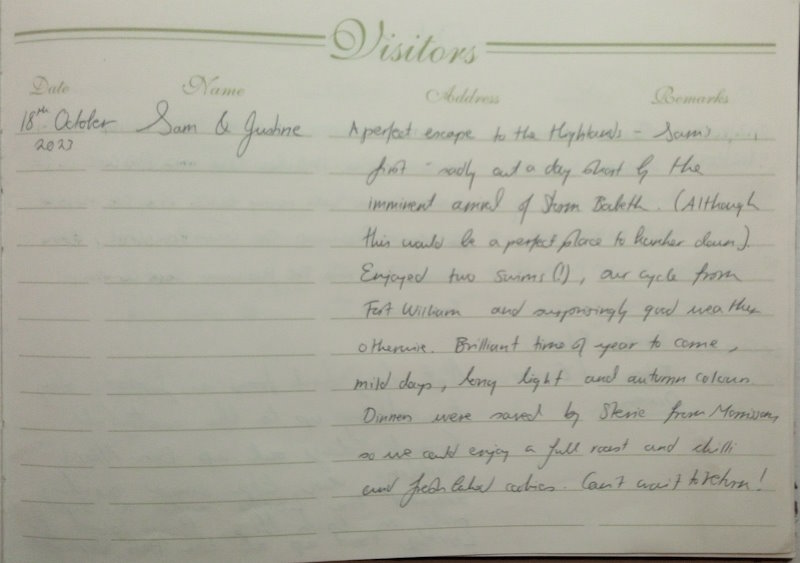 Visitors
Date Name Address Remarks
18th October Sam & Justine A perfect escape to the Highlands - Sam's
2023
first - sadly cut a day short by the
imminent arrival of Storm Babeth. (Although
this would be a perfect place to hunker down).
Enjoyed two swims (!), our cycle from
Fort William and surprisingly good weather
otherwise. Brilliant time of year to come,
mild days, long light and autumn colours.
Dinners were saved by Stevie from Morrisons
so we could enjoy a full roast and chilli
and fresh baked cookies. Can't wait to return!